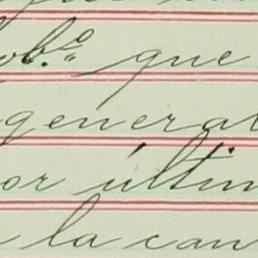 ob.º que
general
or últim
la can